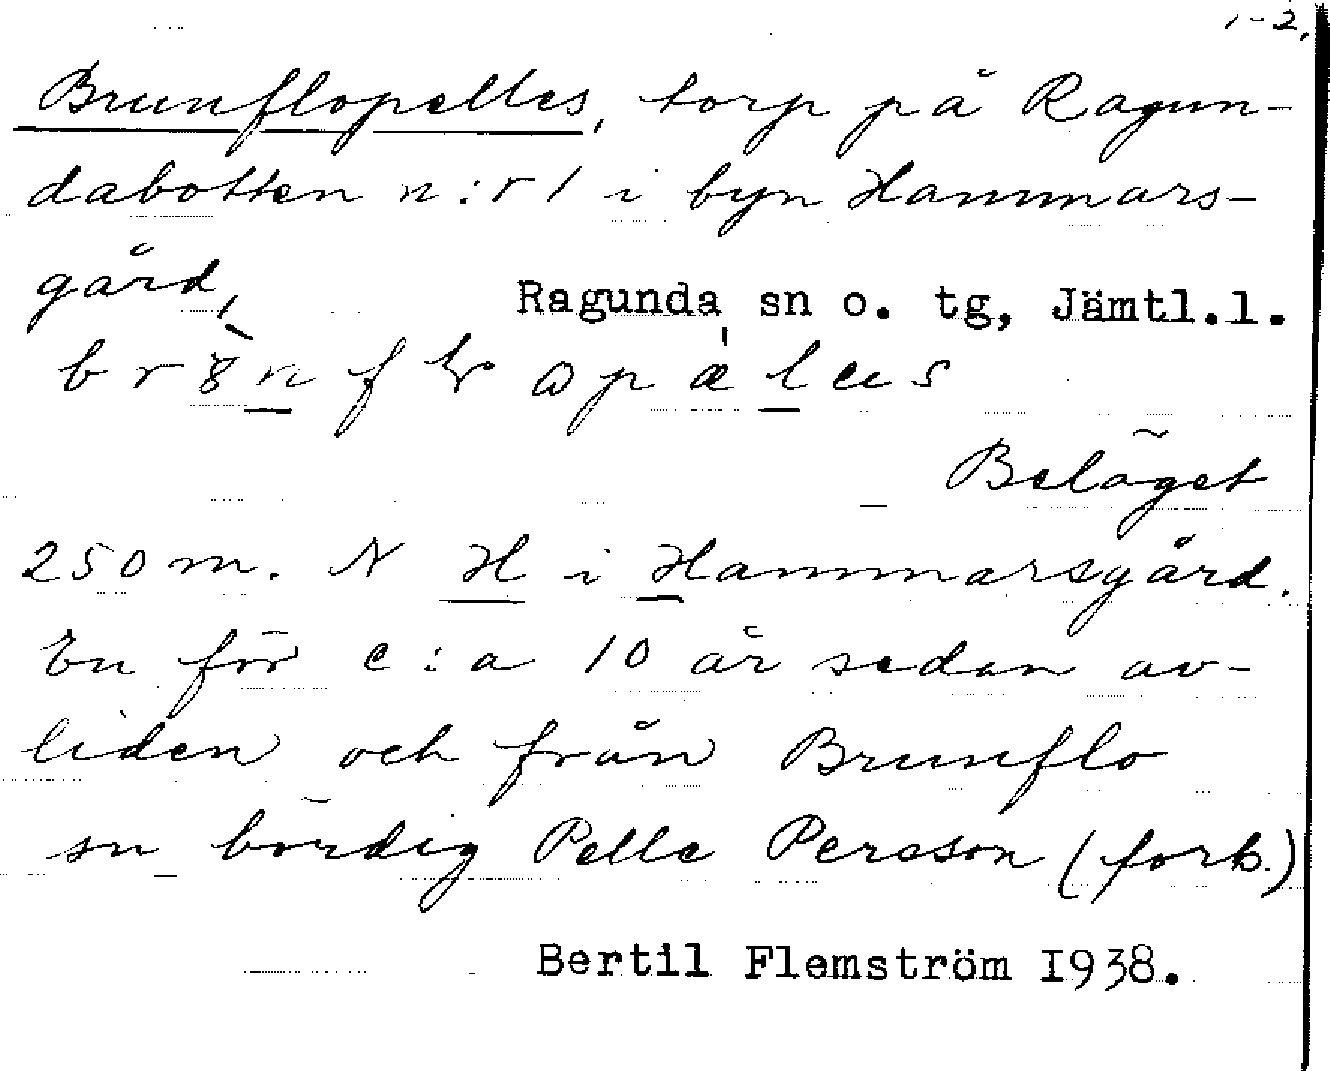 1-2.
Brunflopelles, torp på Ragun-
dabotten n:r 1 i byn Hammars-
gård,
Ragunda sn o. tg, Jämtl.l.
Beläget
250 m. N H i Hammarsgård.
En för c:a 10 år sedan av-
liden och från Brunflo
sn bördig Pelle Persson (forts.)
Bertil Flemström 1938.